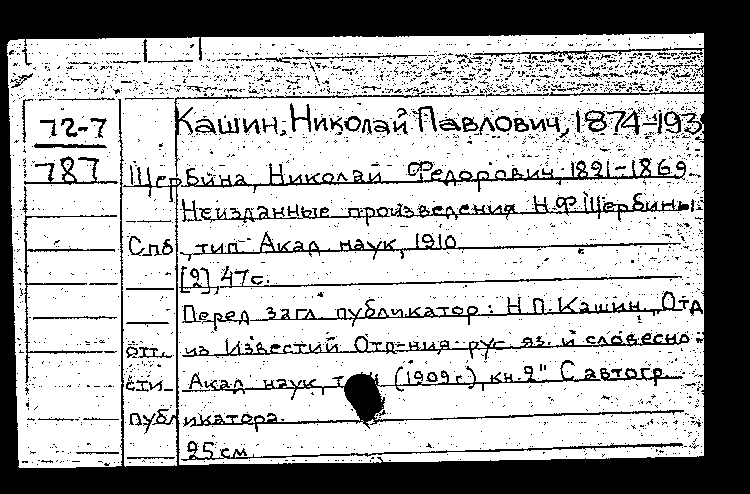 72-7
787
Кашин, Николай Павлович, 1874-193
Щербина, Николай Федорович, 1821-1869
Неизданные произведения Н.Ф. Щербины.
Спб, тип. Акад. наук, 1910
[2], 47 с.
Перед загл. публикатор: Н.П. Кашин. "Отд
отт. из Известий Отд-ния рус. яз. и словесно-
сти Акад. наук, (1909 г.), кн. 2" С автогр.
публикатора.
25 см